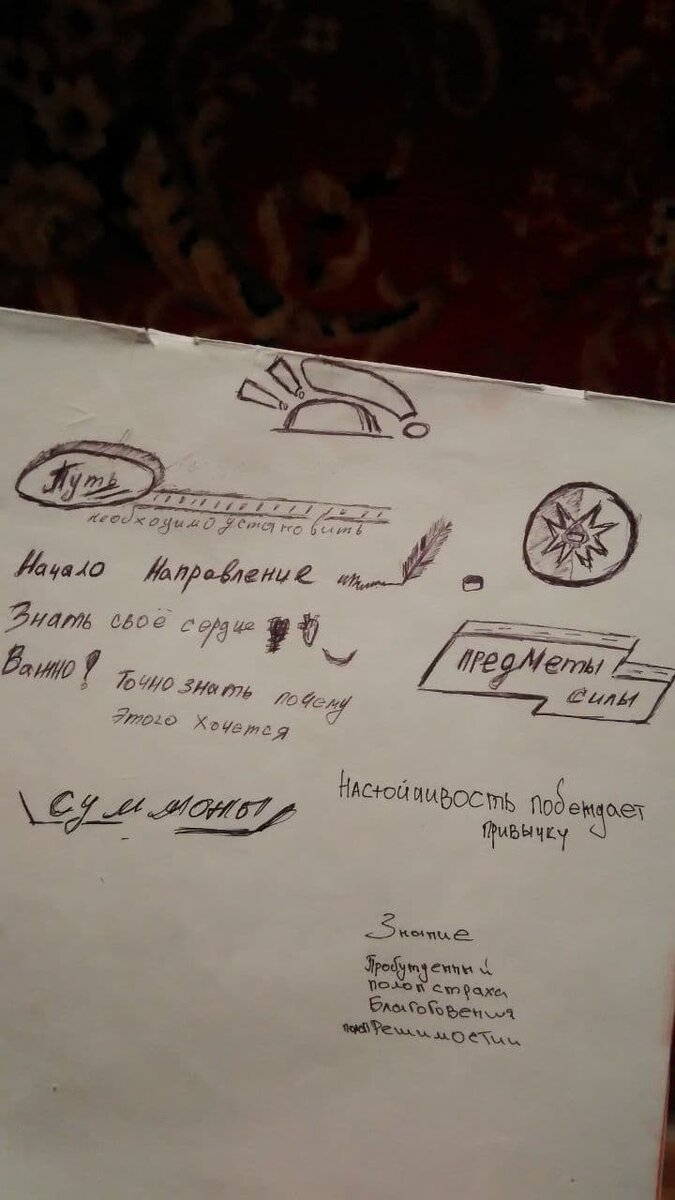 Путь
необходимо установить
Начало Направление
Знать своё сердце
Важно!
Точно знать почему
Этого хочется
ПРЕДМЕТЫ
СИЛЫ
суммоны
Настойчивость побеждает
привычку
Знание
Пробужденный
полон страха
Благоговения
полон Решимостии